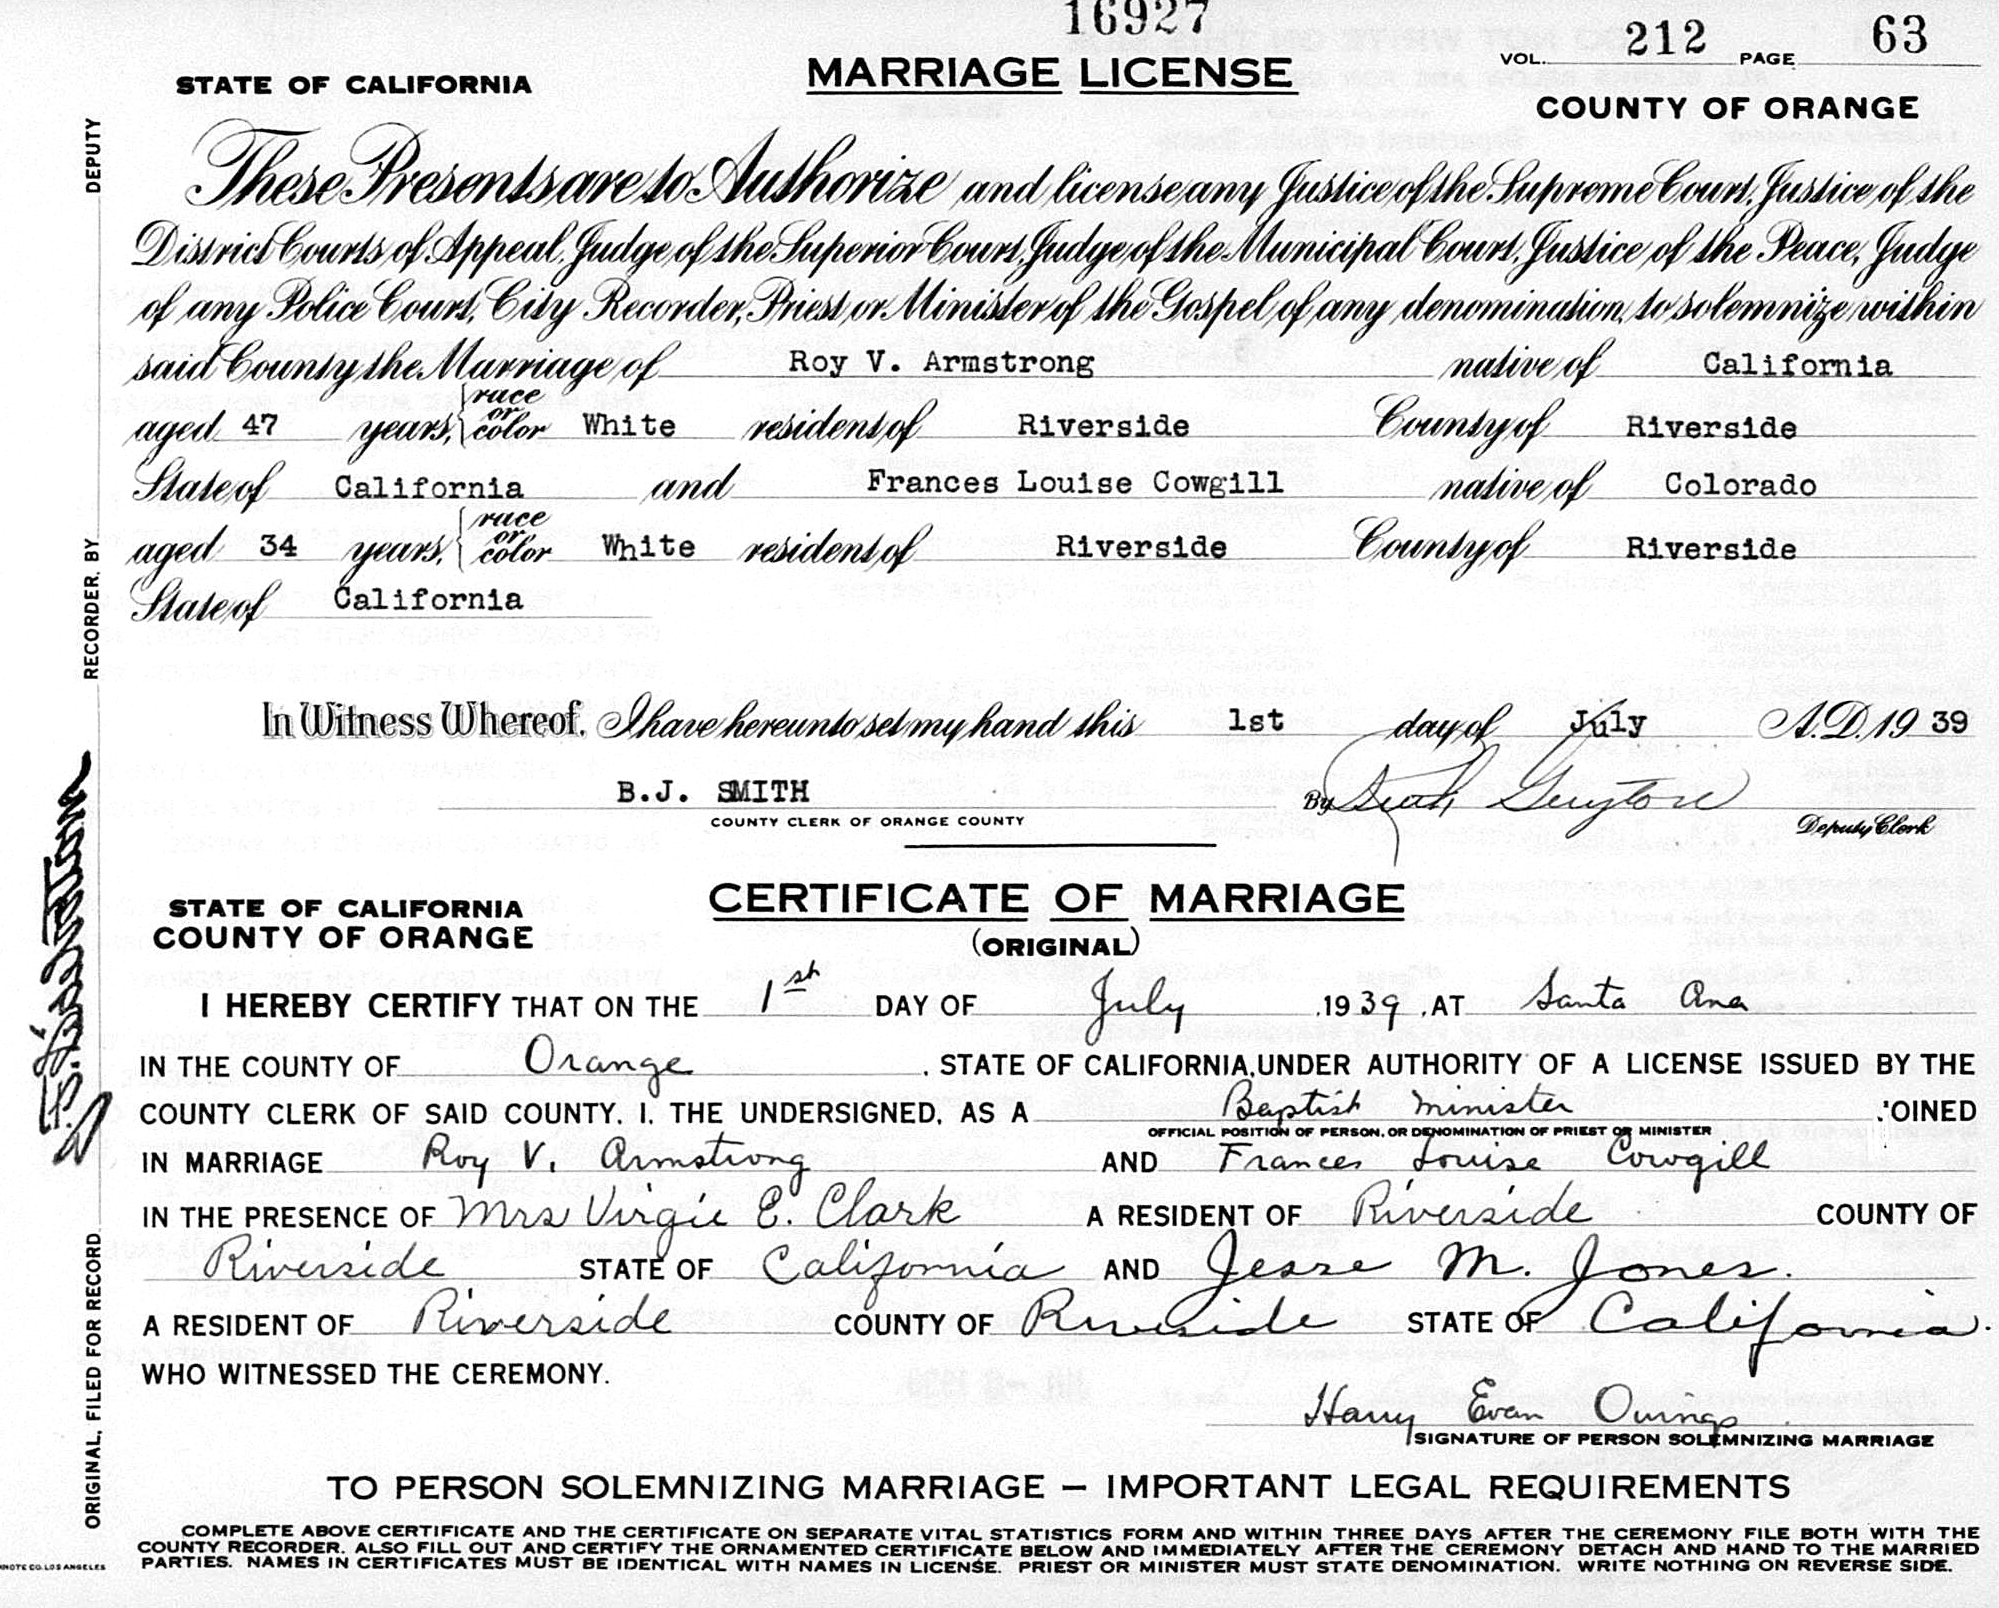 16927
STATE OF CALIFORNIA MARRIAGE LICENSE VOL. 212 PAGE 63
COUNTY OF ORANGE
These Presents are to Authorize and license any Justice of the Supreme Court, Justice of the
District Courts of Appeal, Judge of the Superior Court, Judge of the Municipal Court, Justice of the Peace, Judge
of any Police Court, City Recorder, Priest or Minister of the Gospel of any denomination, to solemnize within
said County the Marriage of Roy V. Armstrong native of California
aged 47 years, race or color White resident of Riverside County of Riverside
State of California and Frances Louise Cowgill native of Colorado
aged 34 years, race or color White resident of Riverside County of Riverside
State of California
In Witness Whereof, I have hereunto set my hand this 1st day of July A.D. 19 39
B.J. SMITH By Guytore
COUNTY CLERK OF ORANGE COUNTY Deputy Clerk
STATE OF CALIFORNIA CERTIFICATE OF MARRIAGE
COUNTY OF ORANGE (ORIGINAL)
I HEREBY CERTIFY THAT ON THE 1st DAY OF July, 1939, AT Santa Ana
IN THE COUNTY OF Orange, STATE OF CALIFORNIA, UNDER AUTHORITY OF A LICENSE ISSUED BY THE
COUNTY CLERK OF SAID COUNTY, I, THE UNDERSIGNED, AS A Baptist minister 'OINED
OFFICIAL POSITION OF PERSON, OR DENOMINATION OF PRIEST OR MINISTER
IN MARRIAGE Roy V. Armstrong AND Frances Louise Cowgill
IN THE PRESENCE OF Mrs Virgie E. Clark A RESIDENT OF Riverside COUNTY OF
Riverside STATE OF California AND Jesse M. Jones.
A RESIDENT OF Riverside COUNTY OF Riverside STATE OF California.
WHO WITNESSED THE CEREMONY.
Harry Evan Owings
SIGNATURE OF PERSON SOLEMNIZING MARRIAGE
TO PERSON SOLEMNIZING MARRIAGE – IMPORTANT LEGAL REQUIREMENTS
COMPLETE ABOVE CERTIFICATE AND THE CERTIFICATE ON SEPARATE VITAL STATISTICS FORM AND WITHIN THREE DAYS AFTER THE CEREMONY FILE BOTH WITH THE
COUNTY RECORDER. ALSO FILL OUT AND CERTIFY THE ORNAMENTED CERTIFICATE BELOW AND IMMEDIATELY AFTER THE CEREMONY DETACH AND HAND TO THE MARRIED
PARTIES. NAMES IN CERTIFICATES MUST BE IDENTICAL WITH NAMES IN LICENSE. PRIEST OR MINISTER MUST STATE DENOMINATION. WRITE NOTHING ON REVERSE SIDE.
ORIGINAL, FILED FOR RECORD. RECORDER, BY DEPUTY
NOTE CO. LOS ANGELES